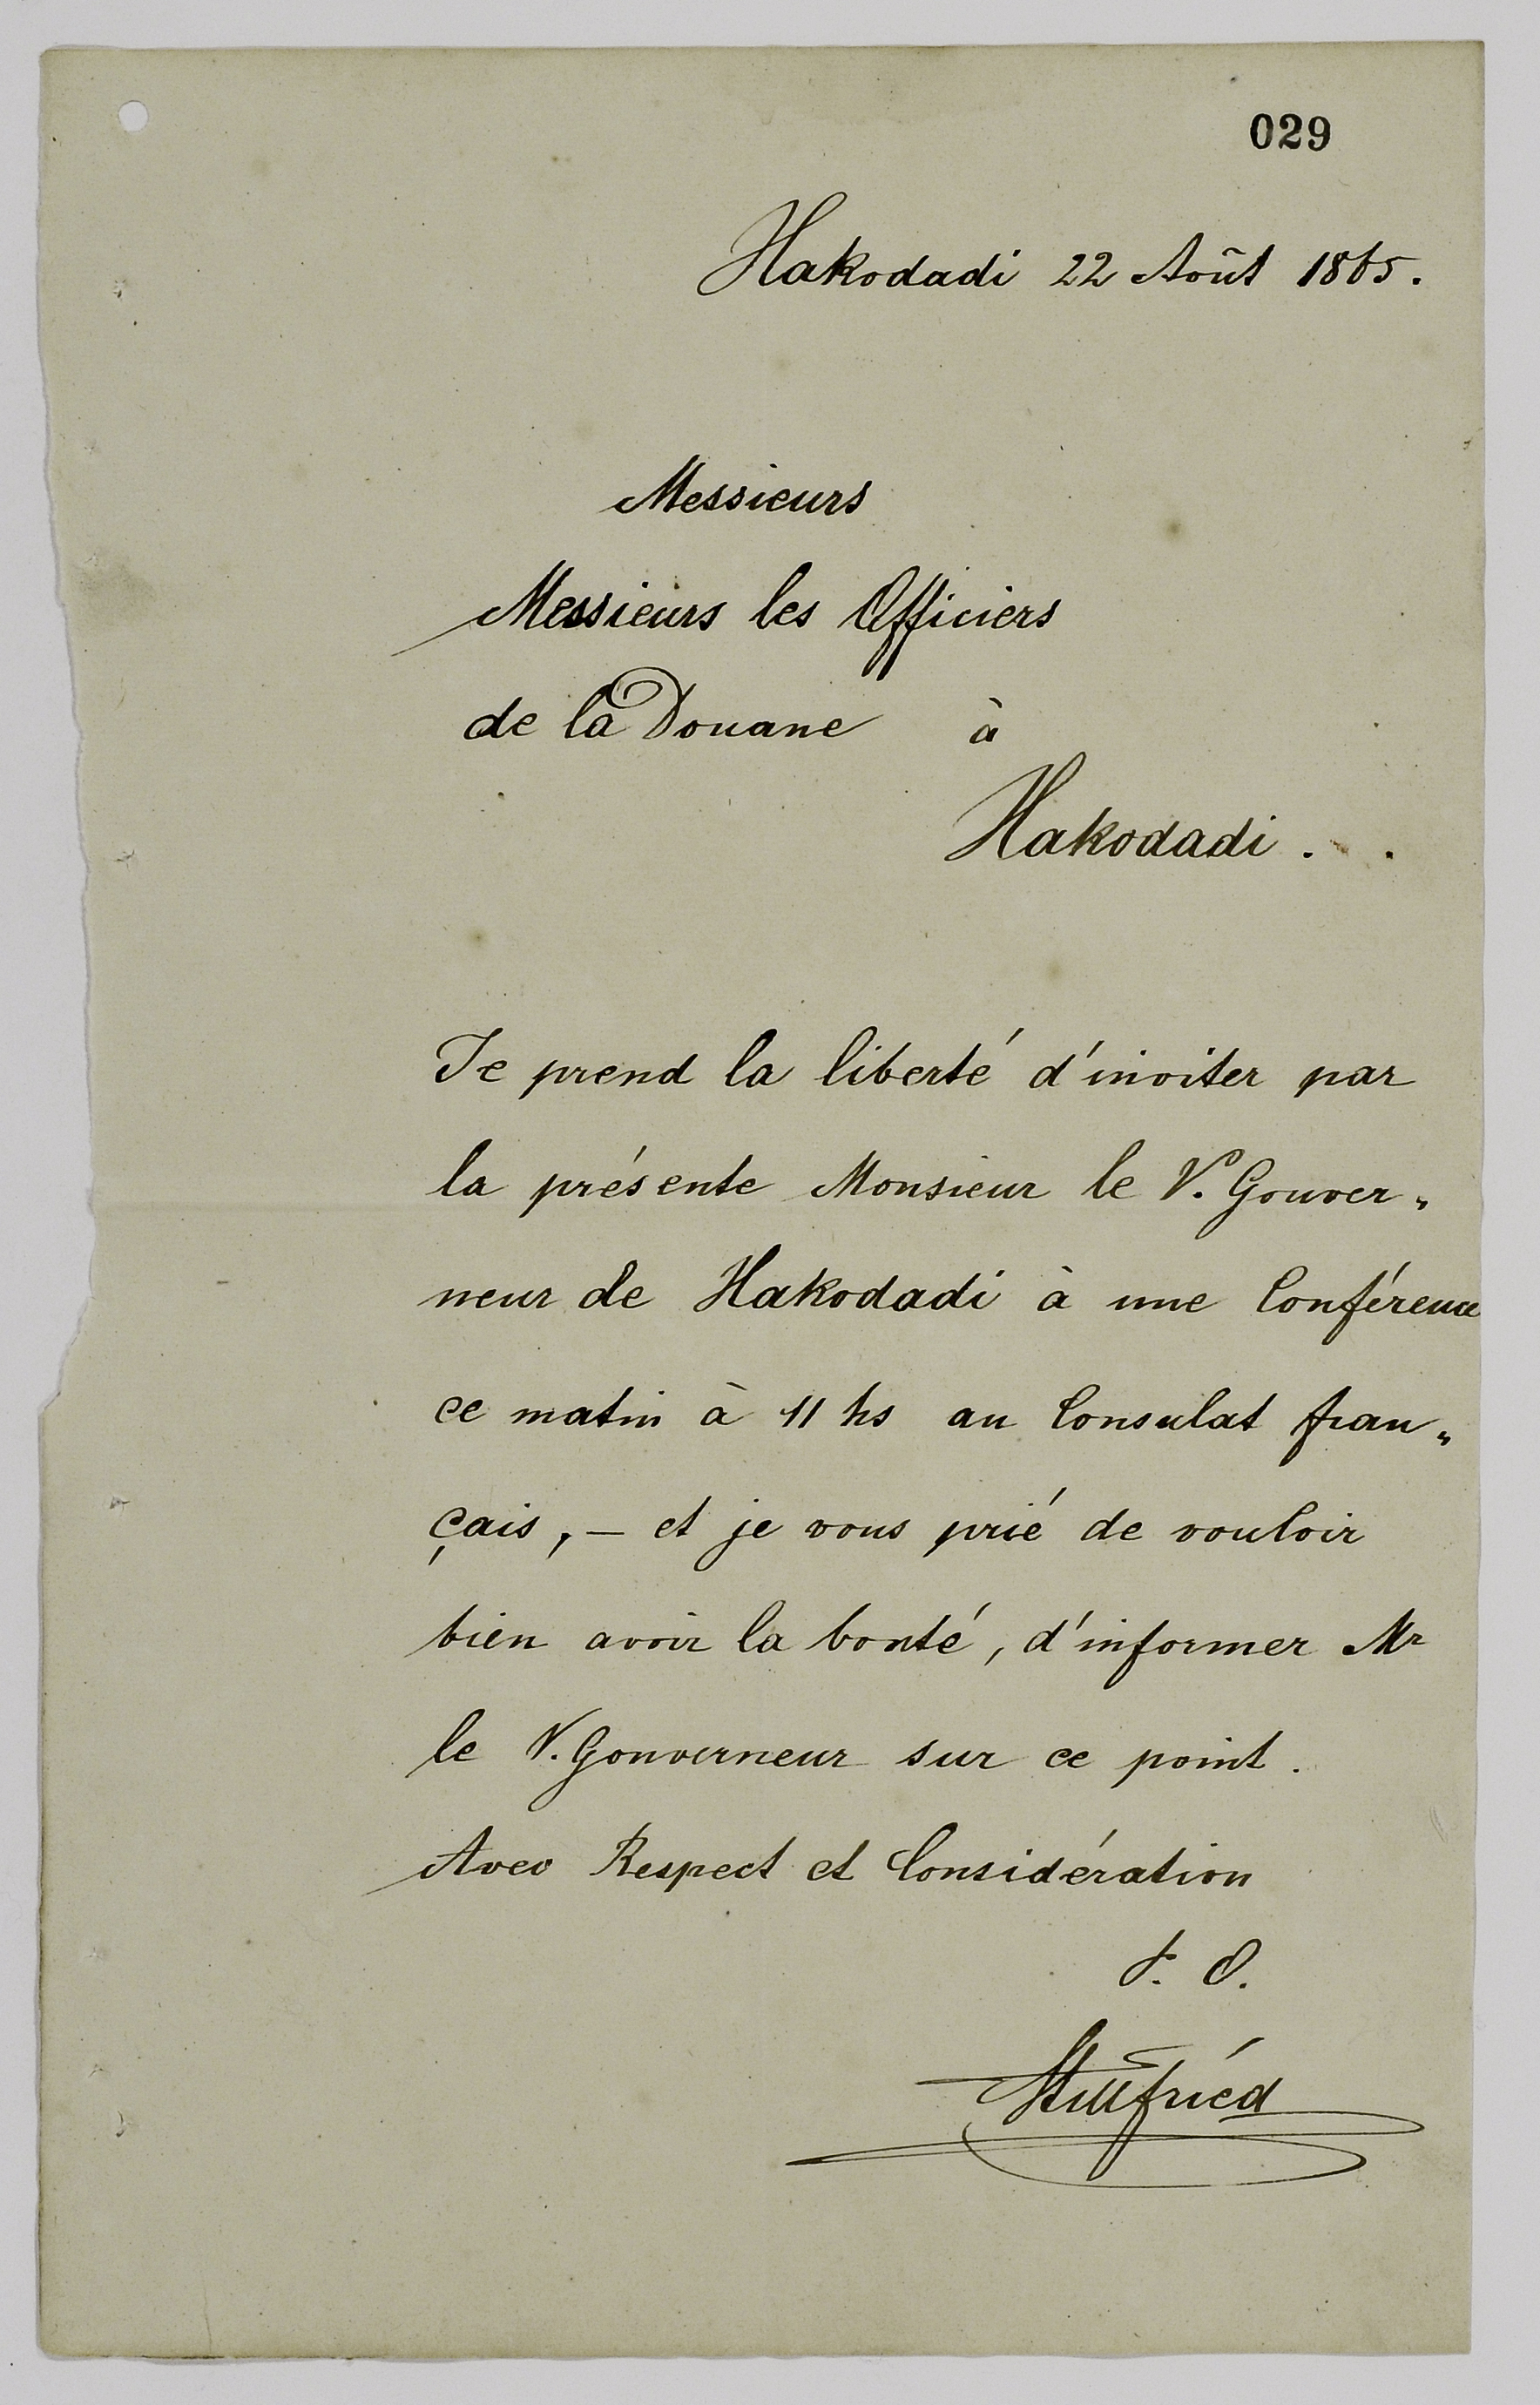 029
Hakodadi 22 Août 1865.
Messieurs
Messieurs les Officiers
de la Douane à
Hakodadi.
Je prend la liberté d'inviter par
la présente Monsieur le V. Gouver„
neur de Hakodadi à une Conférence
ce matin à 11 hs au Consulat fran„
çais, — et je vous prié de vouloir
bien avoir la bonté, d'informer Mr
le V. Gouverneur sur ce point.
Avec Respect et Considération
Stillfried